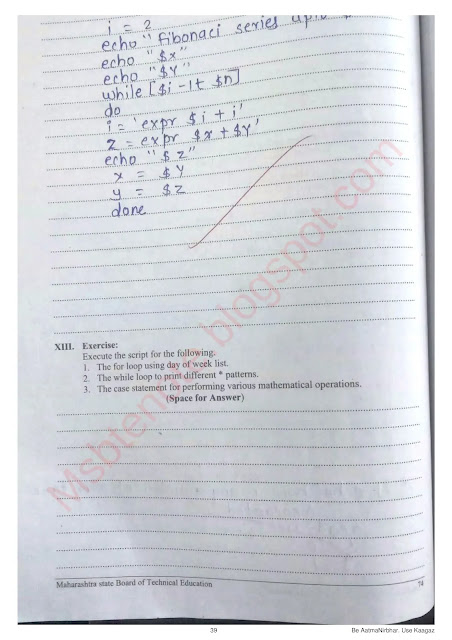 i = 2
echo "Fibonaci series upto
echo "$x"
echo "$Y"
while [$i -lt $n]
do
i = 'expr $i + i'
z = expr $x + $Y'
echo "$z"
x = $Y
y = $z
done
XIII. Exercise:
Execute the script for the following.
1. The for loop using day of week list.
2. The while loop to print different * patterns.
3. The case statement for performing various mathematical operations.
(Space for Answer)
Maharashtra state Board of Technical Education
74
39
Be AatmaNirbhar. Use Kaagaz
blogspot.com